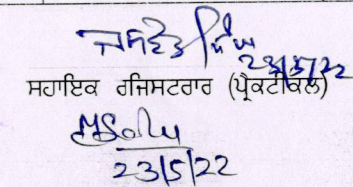 ਜਸਵੰਤ ਸਿੰਘ
23/5/22
ਸਹਾਇਕ ਰਜਿਸਟਰਾਰ (ਪ੍ਰੈਕਟੀਕਲ)
23/5/22